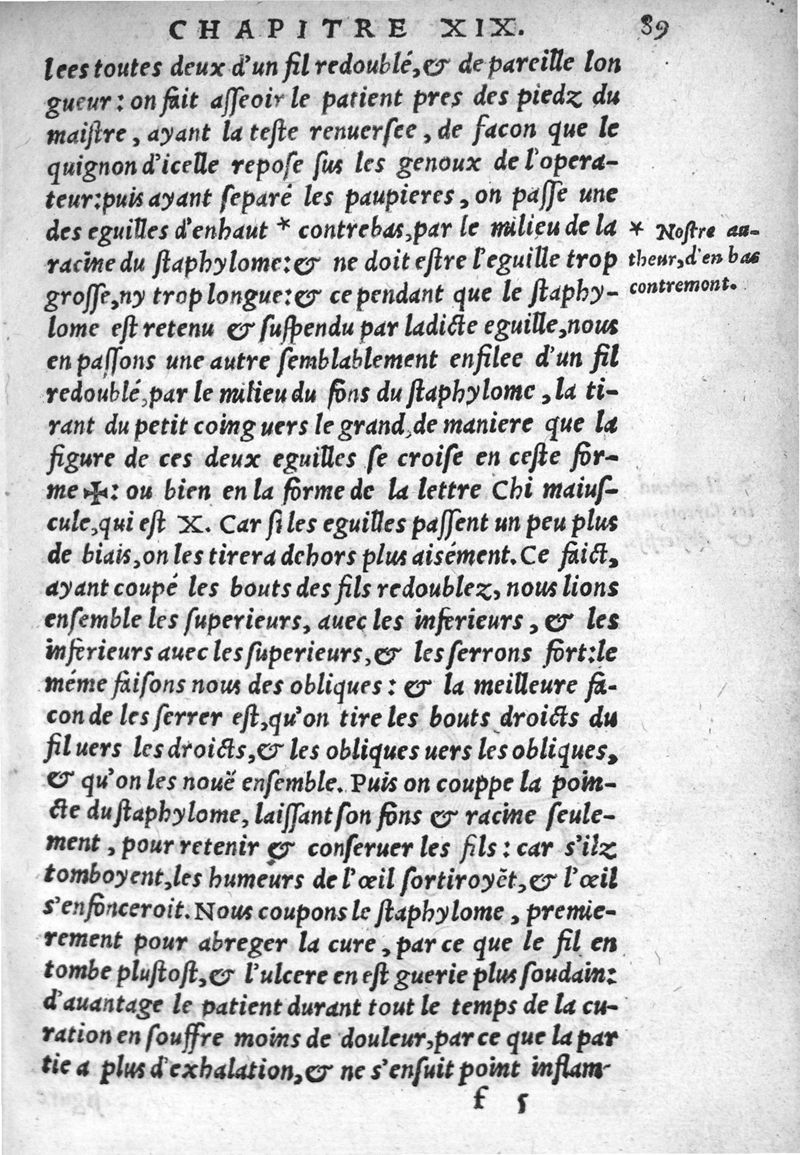 CHAPITRE XIX. 89
lees toutes deux d'un fil redoublé, & de pareille lon
gueur: on fait asseoir le patient pres des piedz du
maistre, ayant la teste renuersee, de facon que le
quignon d'icelle repose sus les genoux de l'opera-
teur: puis ayant separé les paupieres, on passe une
des eguilles d'enhaut * contrebas, par le milieu de la
racine du staphylome: & ne doit estre l'eguille trop
grosse, ny trop longue: & ce pendant que le staphy-
lome est retenu & suspendu par ladicte eguille, nous
en passons une autre semblablement enfilee d'un fil
redoublé, par le milieu du fons du staphylome, la ti-
rant du petit coing uers le grand, de maniere que la
figure de ces deux eguilles se croise en ceste for-
me ✠: ou bien en la forme de la lettre Chi maius-
cule, qui est X. Car si les eguilles passent un peu plus
de biais, on les tirera dehors plus aisément. Ce faict,
ayant coupé les bouts des fils redoublez, nous lions
ensemble les superieurs, auec les inferieurs, & les
inferieurs auec les superieurs, & les serrons fort: le
méme faisons nous des obliques: & la meilleure fa-
con de les serrer est, qu'on tire les bouts droicts du
fil uers les droicts, & les obliques uers les obliques,
& qu'on les nouë ensemble. Puis on couppe la poin-
cte du staphylome, laissant son fons & racine seule-
ment, pour retenir & conseruer les fils: car s'ilz
tomboyent, les humeurs de l'œil sortiroyẽt, & l'œil
s'enfonceroit. Nous coupons le staphylome, premie-
rement pour abreger la cure, par ce que le fil en
tombe plustost, & l'ulcere en est guerie plus soudain:
d'auantage le patient durant tout le temps de la cu-
ration en souffre moins de douleur, par ce que la par
tie a plus d'exhalation, & ne s'ensuit point inflam-
f 5
* Nostre au-
theur, d'en bas
contremont.